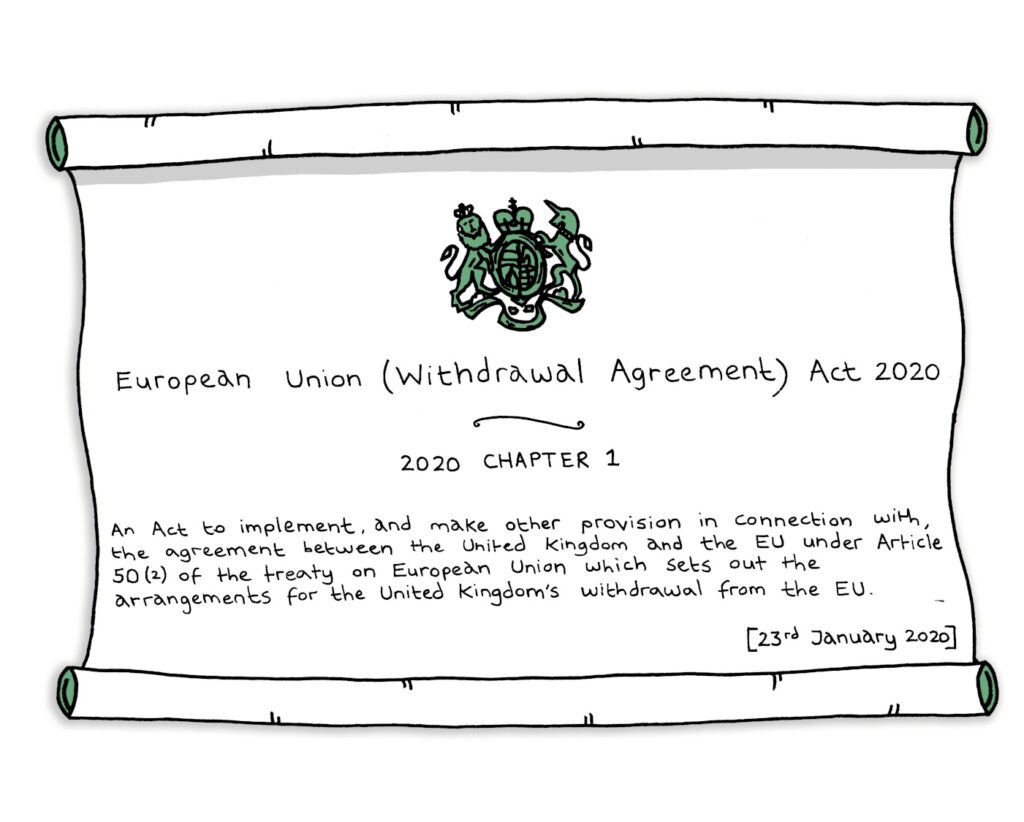 European Union (Withdrawal Agreement) Act 2020
2020 CHAPTER 1
An Act to implement, and make other provision in connection with,
the agreement between the United Kingdom and the EU under Article
50(2) of the treaty on European Union which sets out the
arrangements for the United Kingdom's withdrawal from the EU.
[23rd January 2020]